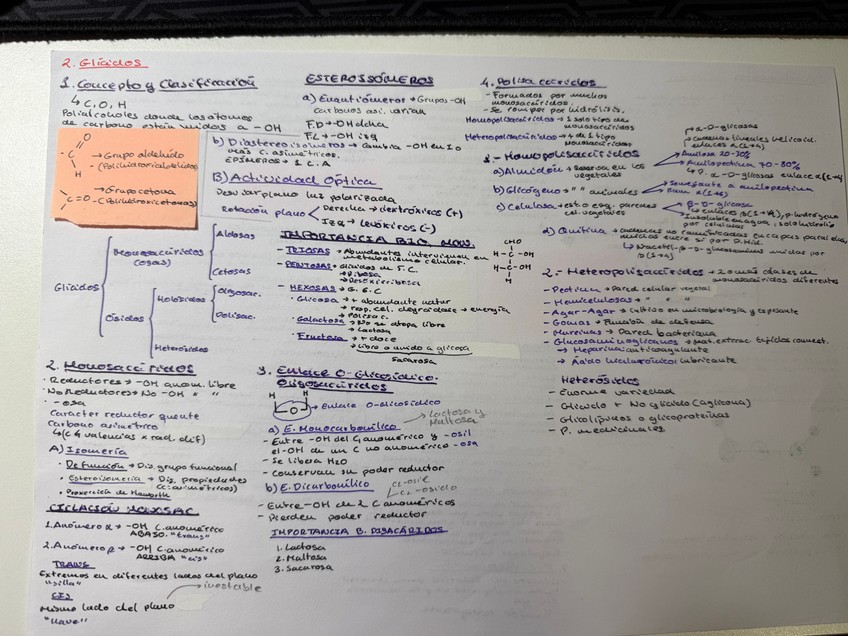 2. Glícidos
1. Concepto y Clasificación
↳ C, O, H
Polialcoholes donde los átomos
de carbono están unidos a -OH
O
-C → Grupo aldehído
H (Polihidroxialdehídos)
→ Grupo cetona
C=O- (Polihidroxicetonas)
Glícidos
Monosacáridos
(osas)
Aldosas
Cetosas
Ósidos
Holósidos
Oligosac.
Polisac.
Heterósidos
2. Monosacáridos
· Reductores → -OH anom. libre
· No Reductores → No -OH " "
· -osa
Carácter reductor
Carbono asimétrico
↳ (C 4 valencias x rad. dif)
A) Isomería
· De función → Dis. grupo funcional
· Estereoisomería → Dis. propiedades
(C. asimétricos)
· Proyección de Haworth
CICLACIÓN MONOSAC
1. Anómero α → -OH C. anomérico
ABAJO. "trans"
2. Anómero β → -OH C. anomérico
ARRIBA "cis"
TRANS
Extremos en diferentes lados del plano
"silla"
CIS
→ inestable
Mismo lado del plano
"nave"
ESTEROISÓMEROS
a) Enantiómeros → Grupos -OH
carbonos asi. varían
F.D → OH dcha
F.L → OH izq
b) Diastereoisómeros → cambia -OH en 1 o
más C. asimétricos.
EPÍMEROS → 1 C.A
B) Actividad Óptica
Desviar plano luz polarizada
Rotación plano
Derecha → dextróxiros (+)
Izq → levóxiros (-)
IMPORTANCIA BIO. MON.
- TRIOSAS → Abundantes intervienen en
metabolismo celular.
- PENTOSAS → Glícidos de 5.C.
→ Ribosa
→ Desoxirribosa
CHO
H-C-OH
H-C-OH
H
- HEXOSAS → G. 6.C
· Glucosa → + abundante natur
→ resp. cel. degradarse → energía
→ Polisac.
· Galactosa → No se atopa libre
→ Lactosa
· Fructosa → + dulce
→ Libre o unido a glucosa
Sacarosa
3. Enlace O-Glicosídico.
Oligosacáridos
H H
O
→ Enlace O-glicosídico
a) E. Monocarbonílico
→ Lactosa y
Maltosa
- Entre -OH del C anomérico y -osil
el -OH de un C no anomérico -osa
- Se libera H2O
- Conservan su poder reductor
b) E. Dicarbonílico
- Entre -OH de 2 C anoméricos
- Pierden poder reductor
IMPORTANCIA B. DISACÁRIDOS
1. Lactosa
2. Maltosa
3. Sacarosa
4. Polisacáridos
- Formados por muchos
monosacáridos.
- Se rompen por hidrólisis.
Homopolisacáridos → 1 solo tipo de
monosacáridos
Heteropolisacáridos → + de 1 tipo
monosacáridos
1.- Homopolisacáridos
a) Almidón → Reserva en los
vegetales
→ α-D-glucosas
→ cadenas lineales helicoid.
enlaces α(1→4)
Amilosa 20-30%
Amilopectina 70-80%
↳ P. α-D-glucosas enlace α(1→4)
b) Glucógeno → " " animales
Semejante a amilopectina
Ram. α(1→6)
c) Celulosa → esto esq. paredes
cel. vegetales
β-D-glucosa
↳ enlaces β(1→4), p. hidrógeno
Insoluble en agua, solo hidrólisis
por celulasas
d) Quitina → cadenas no ramificadas en capas paralelas,
unidas entre sí por P. Hid.
↳ N-acetil-β-D-glucosaminas unidas por
β(1→4)
2.- Heteropolisacáridos → 2 o más clases de
monosacáridos diferentes
- Pectina → Pared celular vegetal
- Hemicelulosas → " " "
- Agar-Agar → Cultivo en microbiología y espesante
- Gomas → Función de defensa
- Mureínas → Pared bacteriana
- Glucosaminoglicanos → Mat. extrac. tejidos conect.
→ Heparina: anticoagulante
→ Ácido hialurónico: lubricante
Heterósidos
- Enorme variedad
- Glícido + No glícido (aglicona)
- Glicolípidos o glicoproteínas
- P. medicinales